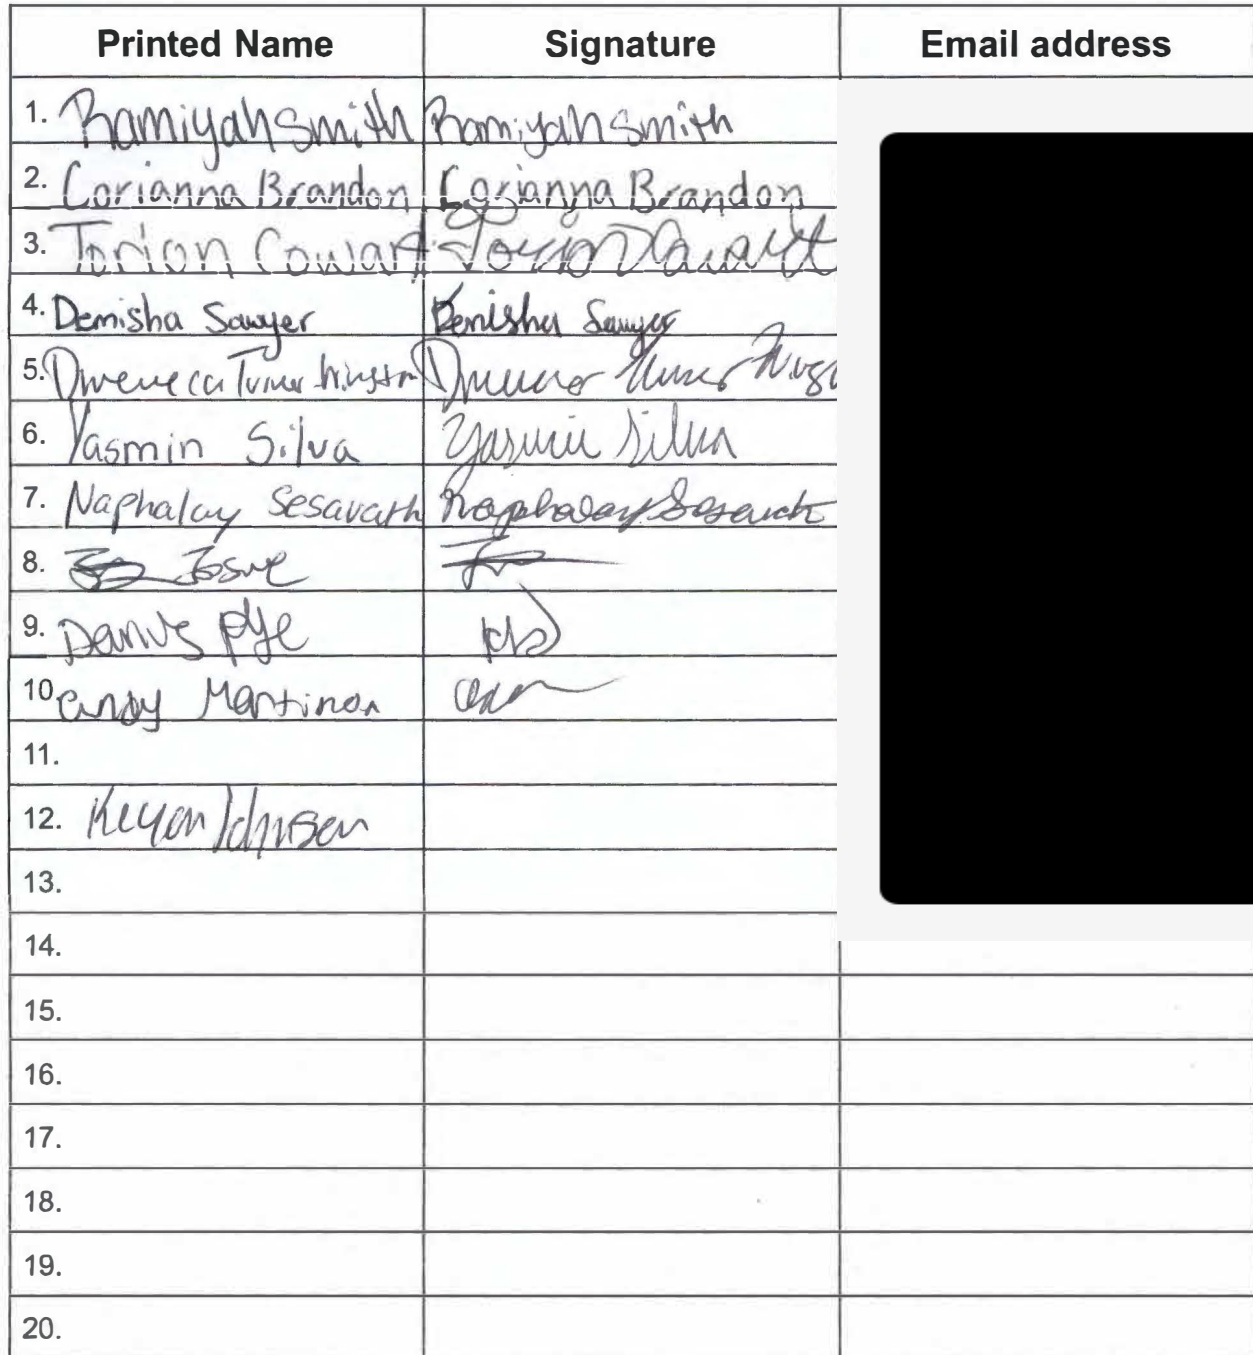 Printed Name Signature Email address
1. Ramiyah Smith Ramiyah Smith
2. Corianna Brandon Corianna Brandon
3. Torion Cowart Torion Cowart
4. Demisha Sawyer Demisha Sawyer
5. Turner
6. Yasmin Silva Yasmin Silva
7. Naphalay Sesavath Naphalay Sesavath
8. Josue
9. Darius Pye
10. Martinon
11.
12. Johnson
13.
14.
15.
16.
17.
18.
19.
20.